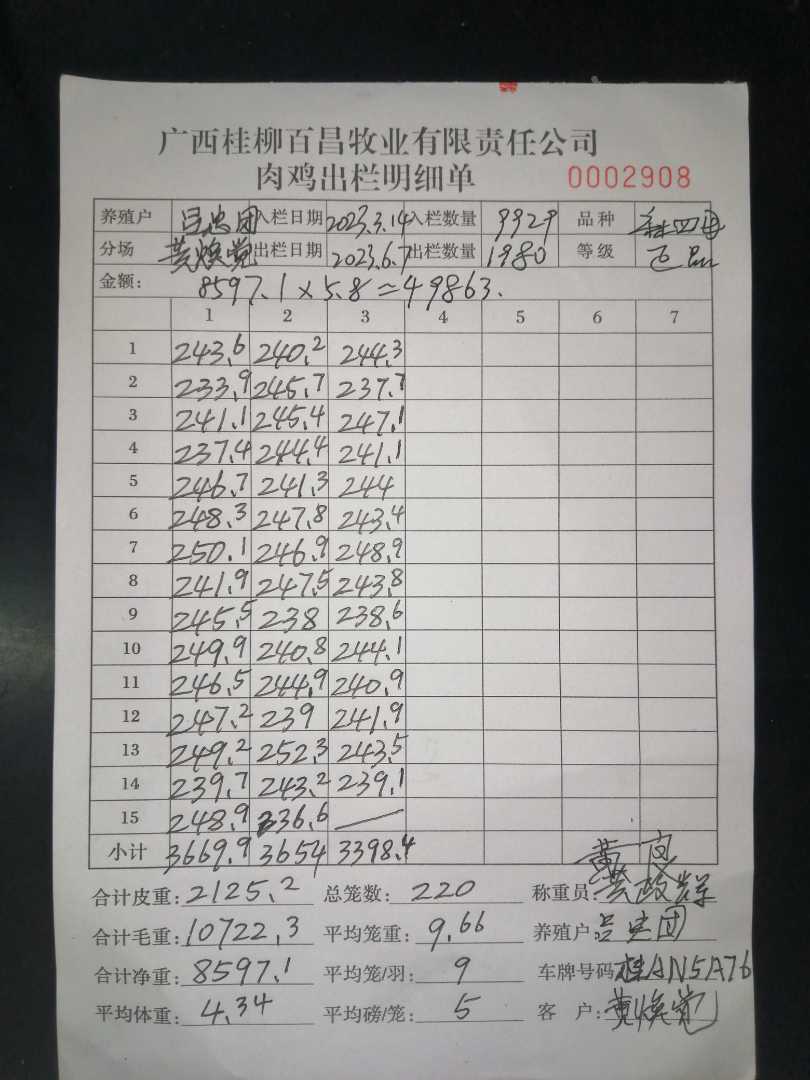 广西桂柳百昌牧业有限责任公司
肉鸡出栏明细单 0002908
养殖户 吕忠团 入栏日期 2023.3.14 入栏数量 9929 品种
分场 黄焕党 出栏日期 2023.6.7 出栏数量 1980 等级
金额: 8597.1×5.8=49863.
1 2 3 4 5 6 7
1 243.6 240.2 244.3
2 233.9 245.7 237.7
3 241.1 245.4 247.1
4 237.4 244.4 241.1
5 246.7 241.3 244
6 248.3 247.8 243.4
7 250.1 246.9 248.9
8 241.9 247.5 243.8
9 245.5 238 238.6
10 249.9 240.8 244.1
11 246.5 244.9 240.9
12 247.2 239 241.9
13 249.2 252.3 243.5
14 239.7 243.2 239.1
15 248.9 236.6 —
小计 3669.9 3654 3398.4
合计皮重: 2125.2 总笼数: 220 称重员:
合计毛重: 10722.3 平均笼重: 9.66 养殖户: 吕忠团
合计净重: 8597.1 平均笼/羽: 9 车牌号码: 桂AN5A76
平均体重: 4.34 平均磅/笼: 5 客户: 黄焕党